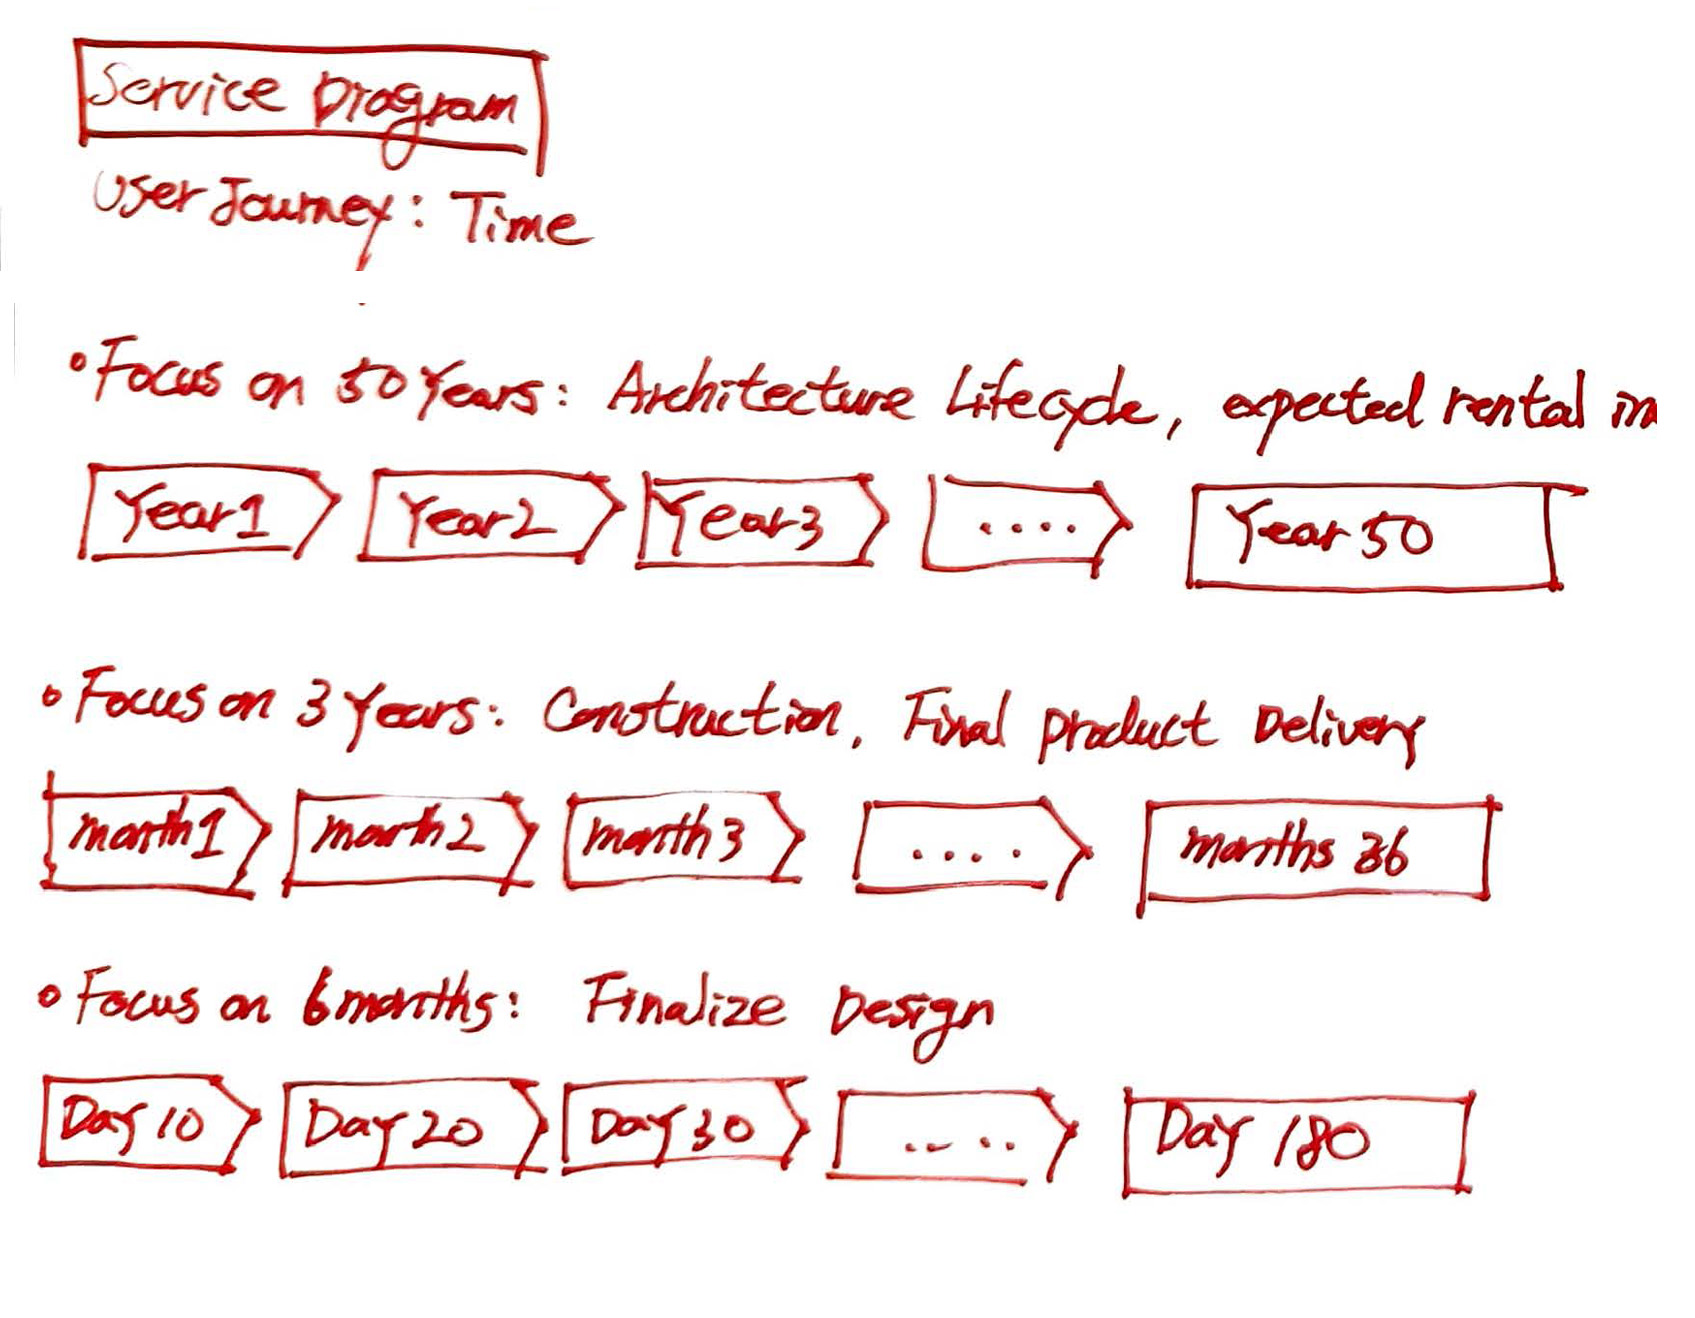 Service Diagram
User Journey: Time
Focus on 50 Years: Architecture Lifecycle, expected rental in
Year1 Year2 Year3 .... Year 50
Focus on 3 Years: Construction, Final product Delivery
month1 month2 month3 .... months 36
Focus on 6 months: Finalize Design
Day 10 Day 20 Day 30 .... Day 180